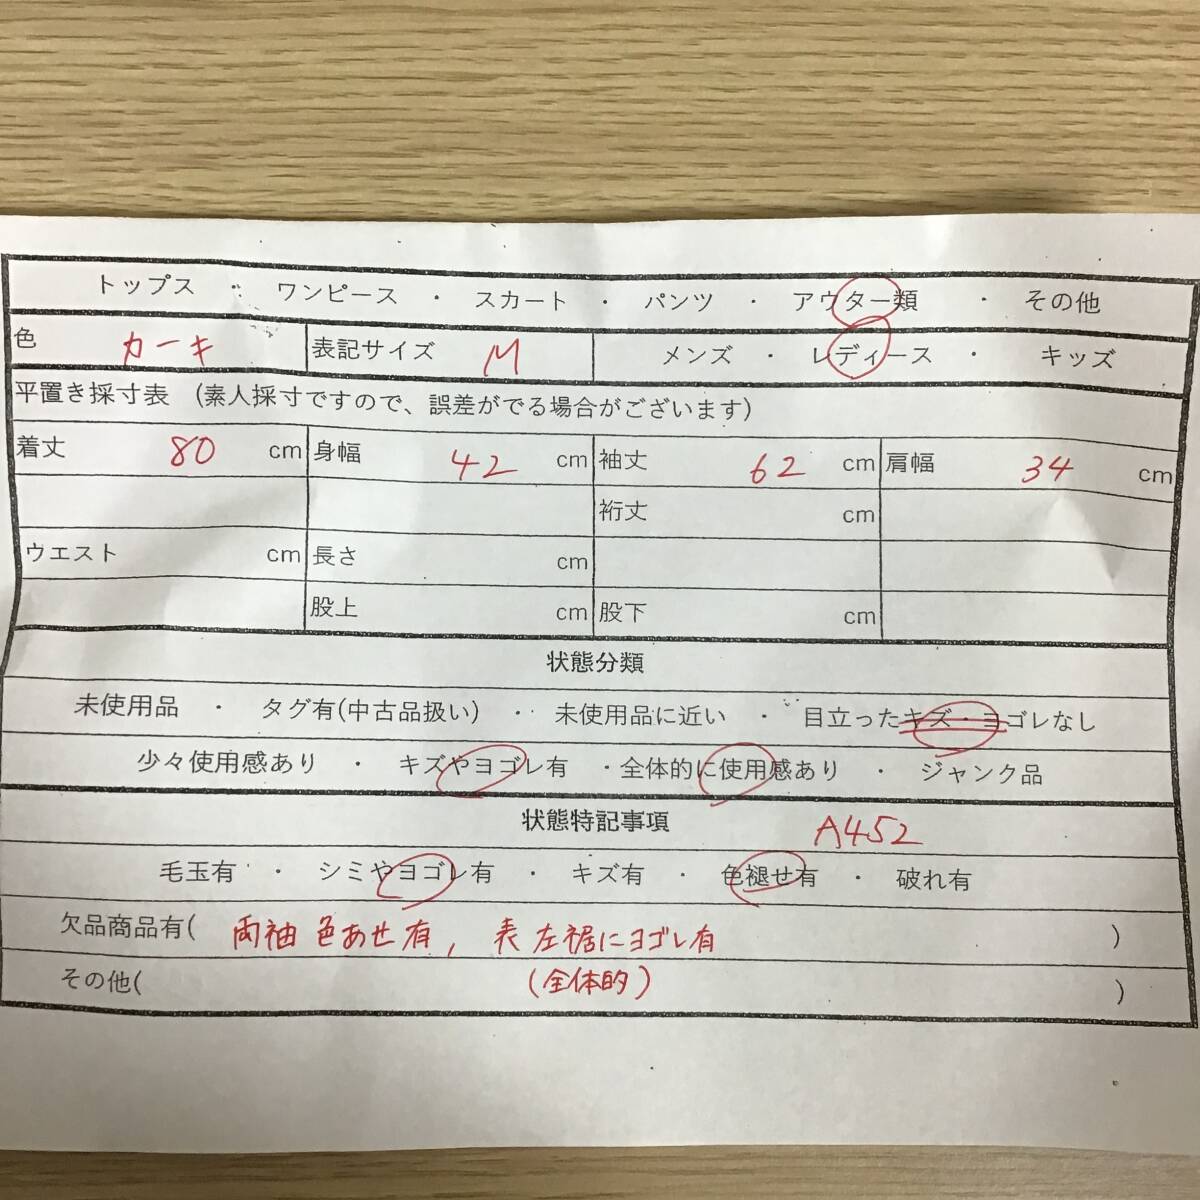 トップス ・ ワンピース ・ スカート ・ パンツ ・ アウター類 ・ その他
色 カーキ 表記サイズ M メンズ ・ レディース ・ キッズ
平置き採寸表 (素人採寸ですので、誤差がでる場合がございます)
着丈 80 cm 身幅 42 cm 袖丈 62 cm 肩幅 34 cm
裄丈 cm
ウエスト cm 長さ cm
股上 cm 股下 cm
状態分類
未使用品 ・ タグ有(中古品扱い) ・ 未使用品に近い ・ 目立ったキズ・ヨゴレなし
少々使用感あり ・ キズやヨゴレ有 ・全体的に使用感あり ・ ジャンク品
状態特記事項 A452
毛玉有 ・ シミやヨゴレ有 ・ キズ有 ・ 色褪せ有 ・ 破れ有
欠品商品有( 両袖 色あせ有, 表 左裾にヨゴレ有 )
その他( (全体的) )